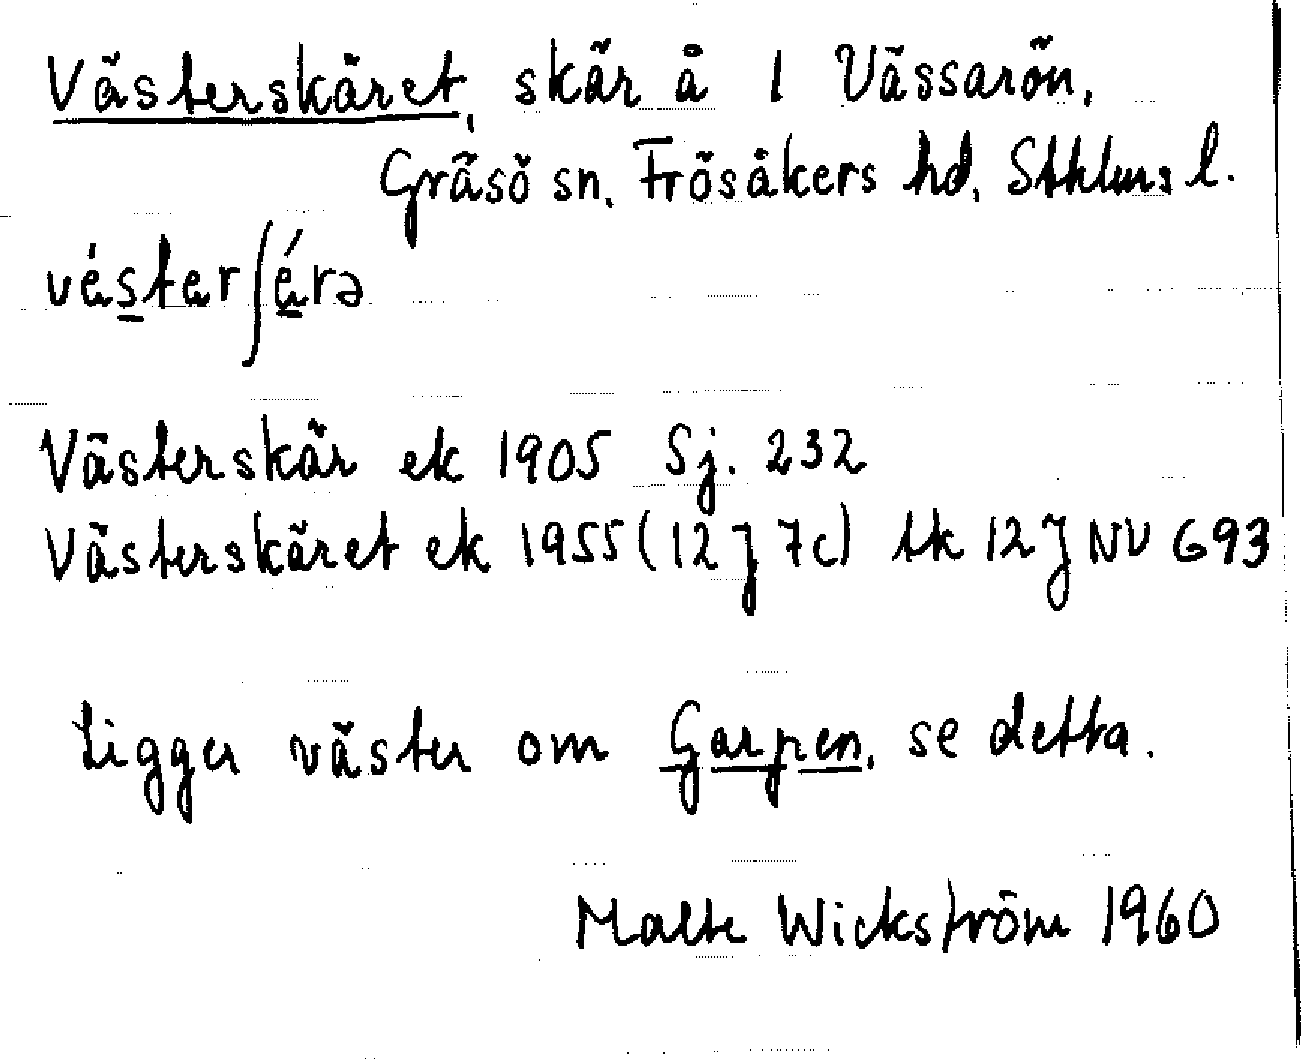 Västerskäret, skär å 1 Vässarön,
Gräsö sn. Frösåkers hd. Sthlms l.
véstarʃérə
Västerskär ek 1905 Sj. 232
Västerskäret ek 1955 (12 J 7c) tk 12 J NV 693
Ligger väster om Garpen, se detta.
Malte Wickström 1960